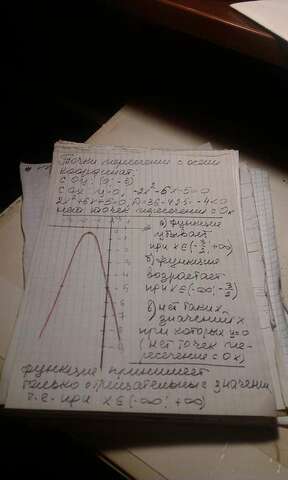 Точки пересечения с осями
координат:
с Oy: (0; -5)
с Ox: y=0, -2x²-6x-5=0
2x²+6x+5=0, D=36-4·2·5=-4<0
нет точек пересечения с Ox
а) функция
убывает
при x∈(-3/2; +∞)
б) функция
возрастает
при x∈(-∞; -3/2)
в) нет таких
значений x
при которых y=0
(нет точек пе-
ресечения с Ox)
функция принимает
только отрицательные значения
т.е. при x∈(-∞; +∞)